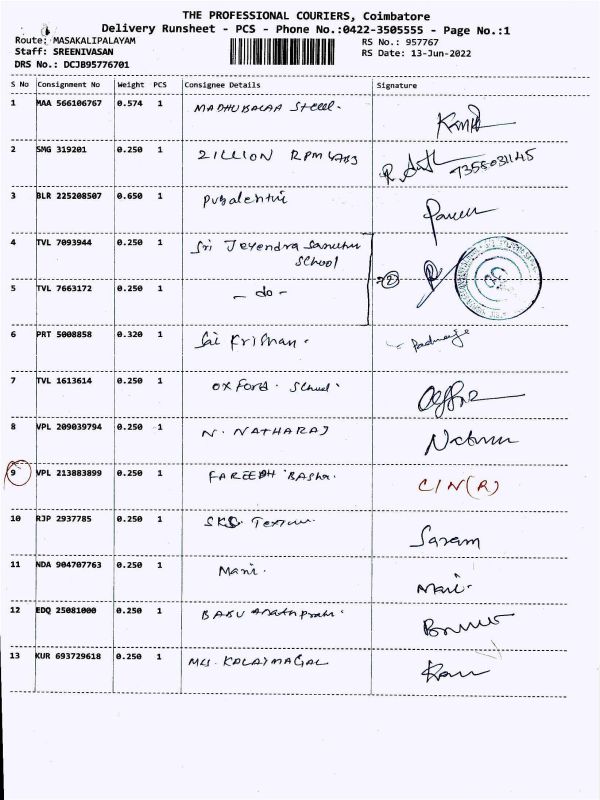 THE PROFESSIONAL COURIERS, Coimbatore
Delivery Runsheet - PCS - Phone No.:0422-3505555 - Page No.:1
Route: MASAKALIPALAYAM RS No.: 957767
Staff: SREENIVASAN RS Date: 13-Jun-2022
DRS No.: DCJB95776701
S No Consignment No Weight PCS Consignee Details Signature
1 MAA 566106767 0.574 1 Steel.
2 SMG 319201 0.250 1 ZILLION RPM
3 BLR 225208507 0.650 1
4 TVL 7093944 0.250 1 Sri Jeyendra
School
5 TVL 7663172 0.250 1 - do -
6 PRT 5008858 0.320 1 Sai Krishnan.
7 TVL 1613614 0.250 1 OXFord. School.
8 VPL 209039794 0.250 1 N. NATHARAJ
9 VPL 213883899 0.250 1 FAREEDH C/N(R)
10 RJP 2937785 0.250 1 SKS. Saram
11 NDA 904707763 0.250 1 Mani. Mari.
12 EDQ 25081000 0.250 1 BABU
13 KUR 693729618 0.250 1 M/s. KALAIMAGAL